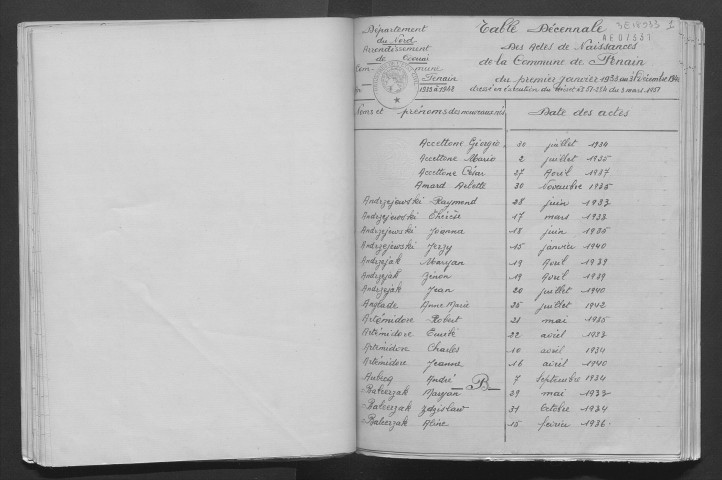 Département
du Nord
Arrondissement
de Douai
Commune
Fenain
1933 à 1942
Table Décennale
3E18313 1
Des Actes de Naissances
de la Commune de Fenain
du premier janvier 1933 au 31 décembre 1942
dressé en exécution du décret n° 51-284 du 3 mars 1951
Noms et prénoms des nouveaux nés Date des actes
Accettone Giorgio 30 juillet 1934
Accettone Mario 2 juillet 1935
Accettone César 27 Avril 1937
Amard Arlette 30 Novembre 1935
Andrzejewski Raymond 28 juin 1933
Andrzejewski Thérèse 17 mars 1933
Andrzejewski Joanna 18 juin 1935
Andrzejewski Jerzy 15 janvier 1940
Andrzejak Maryan 19 Avril 1939
Andrzejak Zénon 19 Avril 1939
Andrzejak Jean 20 juillet 1940
Anglade Anne Marie 25 juillet 1942
Artémidore Robert 21 mai 1935
Artémidore 22 avril 1933
Artémidore Charles 10 avril 1934
Artémidore Jeanne 16 avril 1940
Aubecq André 7 Septembre 1934
B
Balcerzak Maryan 29 mai 1933
Balcerzak Zdzislaw 31 Octobre 1934
Balcerzak Aline 15 février 1936